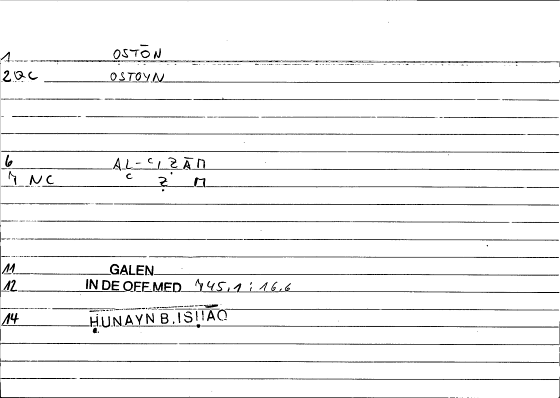 1 OSTŌN
2 QC OSTOYN
6 AL-ʿIẒĀM
7 NC ʿ Ẓ M
11 GALEN
12 IN DE OFF.MED 745,1 : 16.6
14 ḤUNAYN B.ISḤĀQ